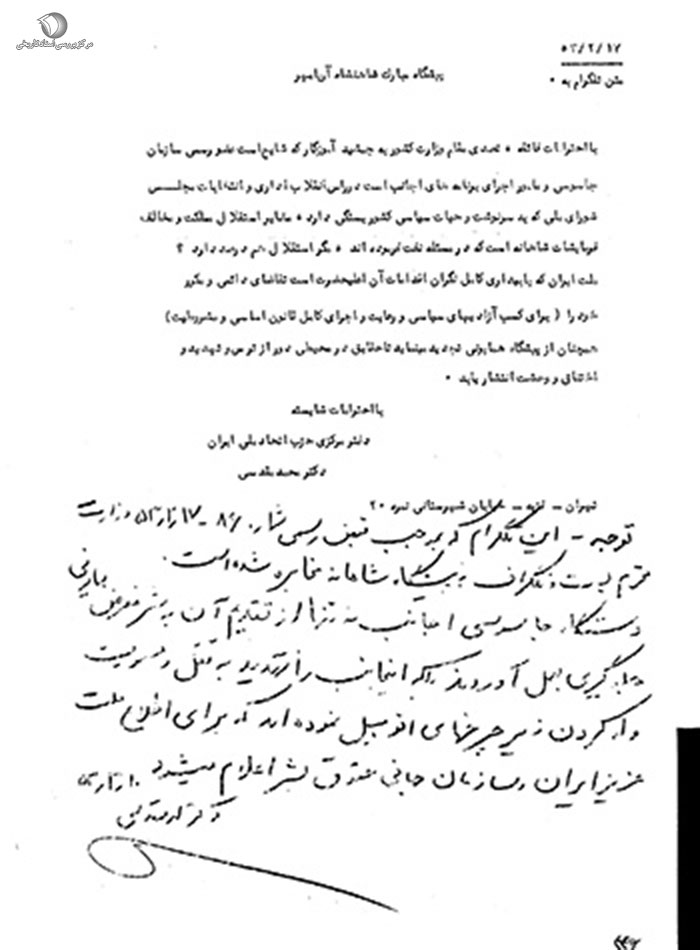 مرکز بررسی اسناد تاریخی
۵۳/۲/۱۷
متن تلگرام به ۰
پیشگاه مبارک شاهنشاه آریامهر
با احترامات فائقه ۰ تصدی مقام وزارت کشور به جمشید آموزگار که شایع است عضو رسمی سازمان
جاسوسی و مامور اجرای برنامه های اجانب است در راس انقلاب اداری و انتخابات مجلس
شورای ملی که به سرنوشت و حیات سیاسی کشور بستگی دارد ۰ مغایر استقلال مملکت و مخالف
فرمایشات شاهانه است که در مسئله نفت فرموده اند ۰ مگر استقلال هم درصد دارد ؟
ملت ایران که با بیداری کامل نگران اقدامات آن اعلیحضرت است تقاضای دائمی و مکرر
خود را ( برای کسب آزادیهای سیاسی و رعایت و اجرای کامل قانون اساسی و مشروطیت )
همچنان از پیشگاه همایونی تجدید مینماید تا حقایق در محیطی دور از ترس و تهدید و
اختناق و وحشت انتشار یابد ۰
با احترامات شایسته
دفتر مرکزی حزب اتحاد ملی ایران
دکتر محمد مقدسی
تهران - خیابان شهرستانی نمره ۲۰
توجه - این تلگرام که بموجب قبض رسمی شماره ۸۶۰ - ۱۷ وزارت
محترم پست و تلگراف به پیشگاه شاهانه مخابره شده است.
دستگاه جاسوسی اجانب نه تنها از تقدیم آن به
جلوگیری بعمل آوردند بلکه اینجانب را تهدید به قتل و
وار کردن زیر چرخهای اتومبیل نموده اند که برای اطلاع ملت
عزیز ایران و سازمان جهانی حقوق بشر اعلام میشود
دکتر مقدسی